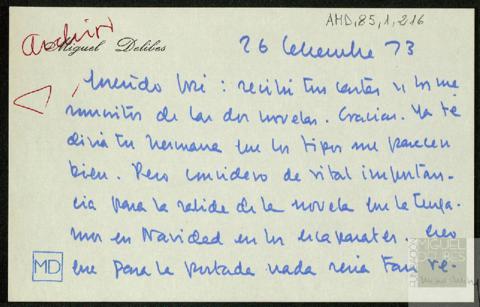 AMD, 85, 1, 216
Archivo
Miguel Delibes
26 73
Querido : recibí tus cartas y los ma
nuscritos de las dos novelas. Gracias. Ya te
diría tu hermana que los tipos me parecen
bien. Pero considero de vital importan-
cia para la salida de la novela que la tenga-
mos en Navidad en los escaparates. Creo
que para la portada nada sería tan re-
MD
FUNDACIÓN
MIGUEL
DELIBES